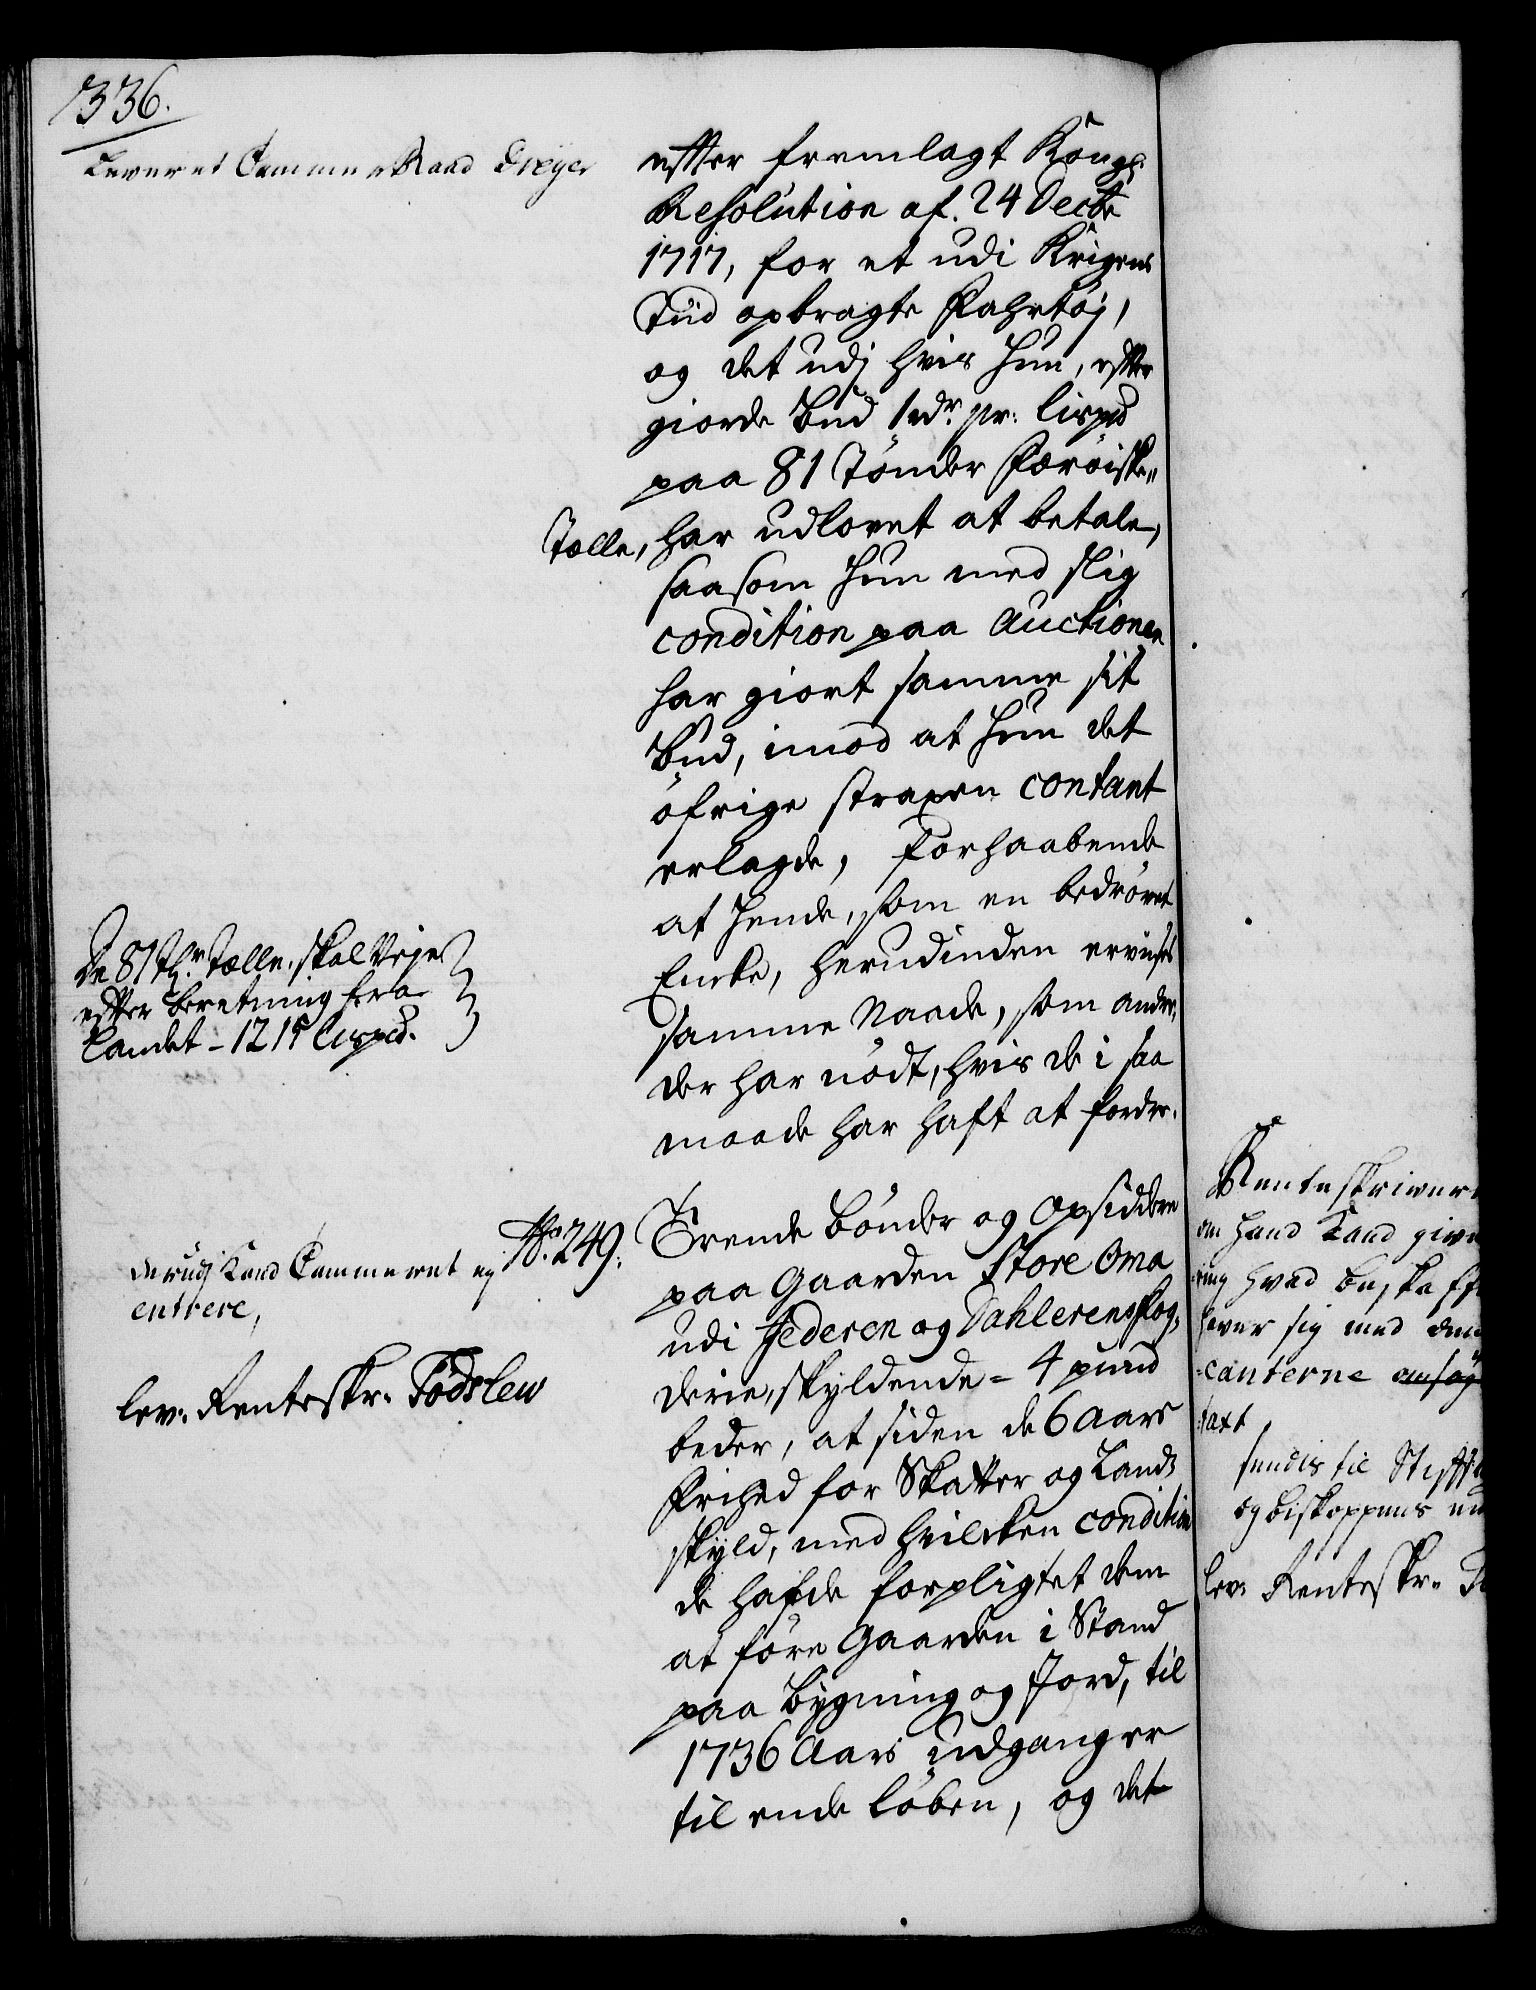 1336.
Leveret Cammer Raad Dreyer
efter fremlagt Kongl:
Resolution af. 24 Decbr
1717, for et udi Krigens
Tiid opbragte Fahrtøj,
og det udj hvis hun, efter
giorde Bud 1 rdr. pr: lispd
paa 81 Tønder Færøiske
Tælle, har udlovet at betale,
saasom hun med slig
condition paa Auctionen
har giort samme sit
Bud, imod at hun det
øfrige straxen contant
erlagde, Forhaabende
at hende, som en bedrøvet
Encke, herudinden ervises
samme Naade, som andre,
der har nødt, hvis de i saa
maade har haft at fordre.
De 81 Tdr Tælle, skal Veje
efter Beretning fra
Landet - 1215 Lispd.
No. 249.
Trende Bønder og Opsiddere
paa Gaarden Store Oma
udi Jederen og Dahlerens Fog-
derie, skyldende = 4 pund
beder, at siden de 6 Aars
Frihed for Skatter og Land-
skyld, med hvilcken condition
de hafde forpligtet dem
at føre Gaarden i Stand
paa Bygning og Jord, til
1736 Aars udgang er
til ende løben, og det
derudj Kand Cammeret ej
entrere,
lev: Renteskr. Todslew
Renteskriver
om hand Kand give
hvad beskaff
haver sig med
canterne
taxt
sendis til Stifft
og biskoppens
lev: Renteskr.